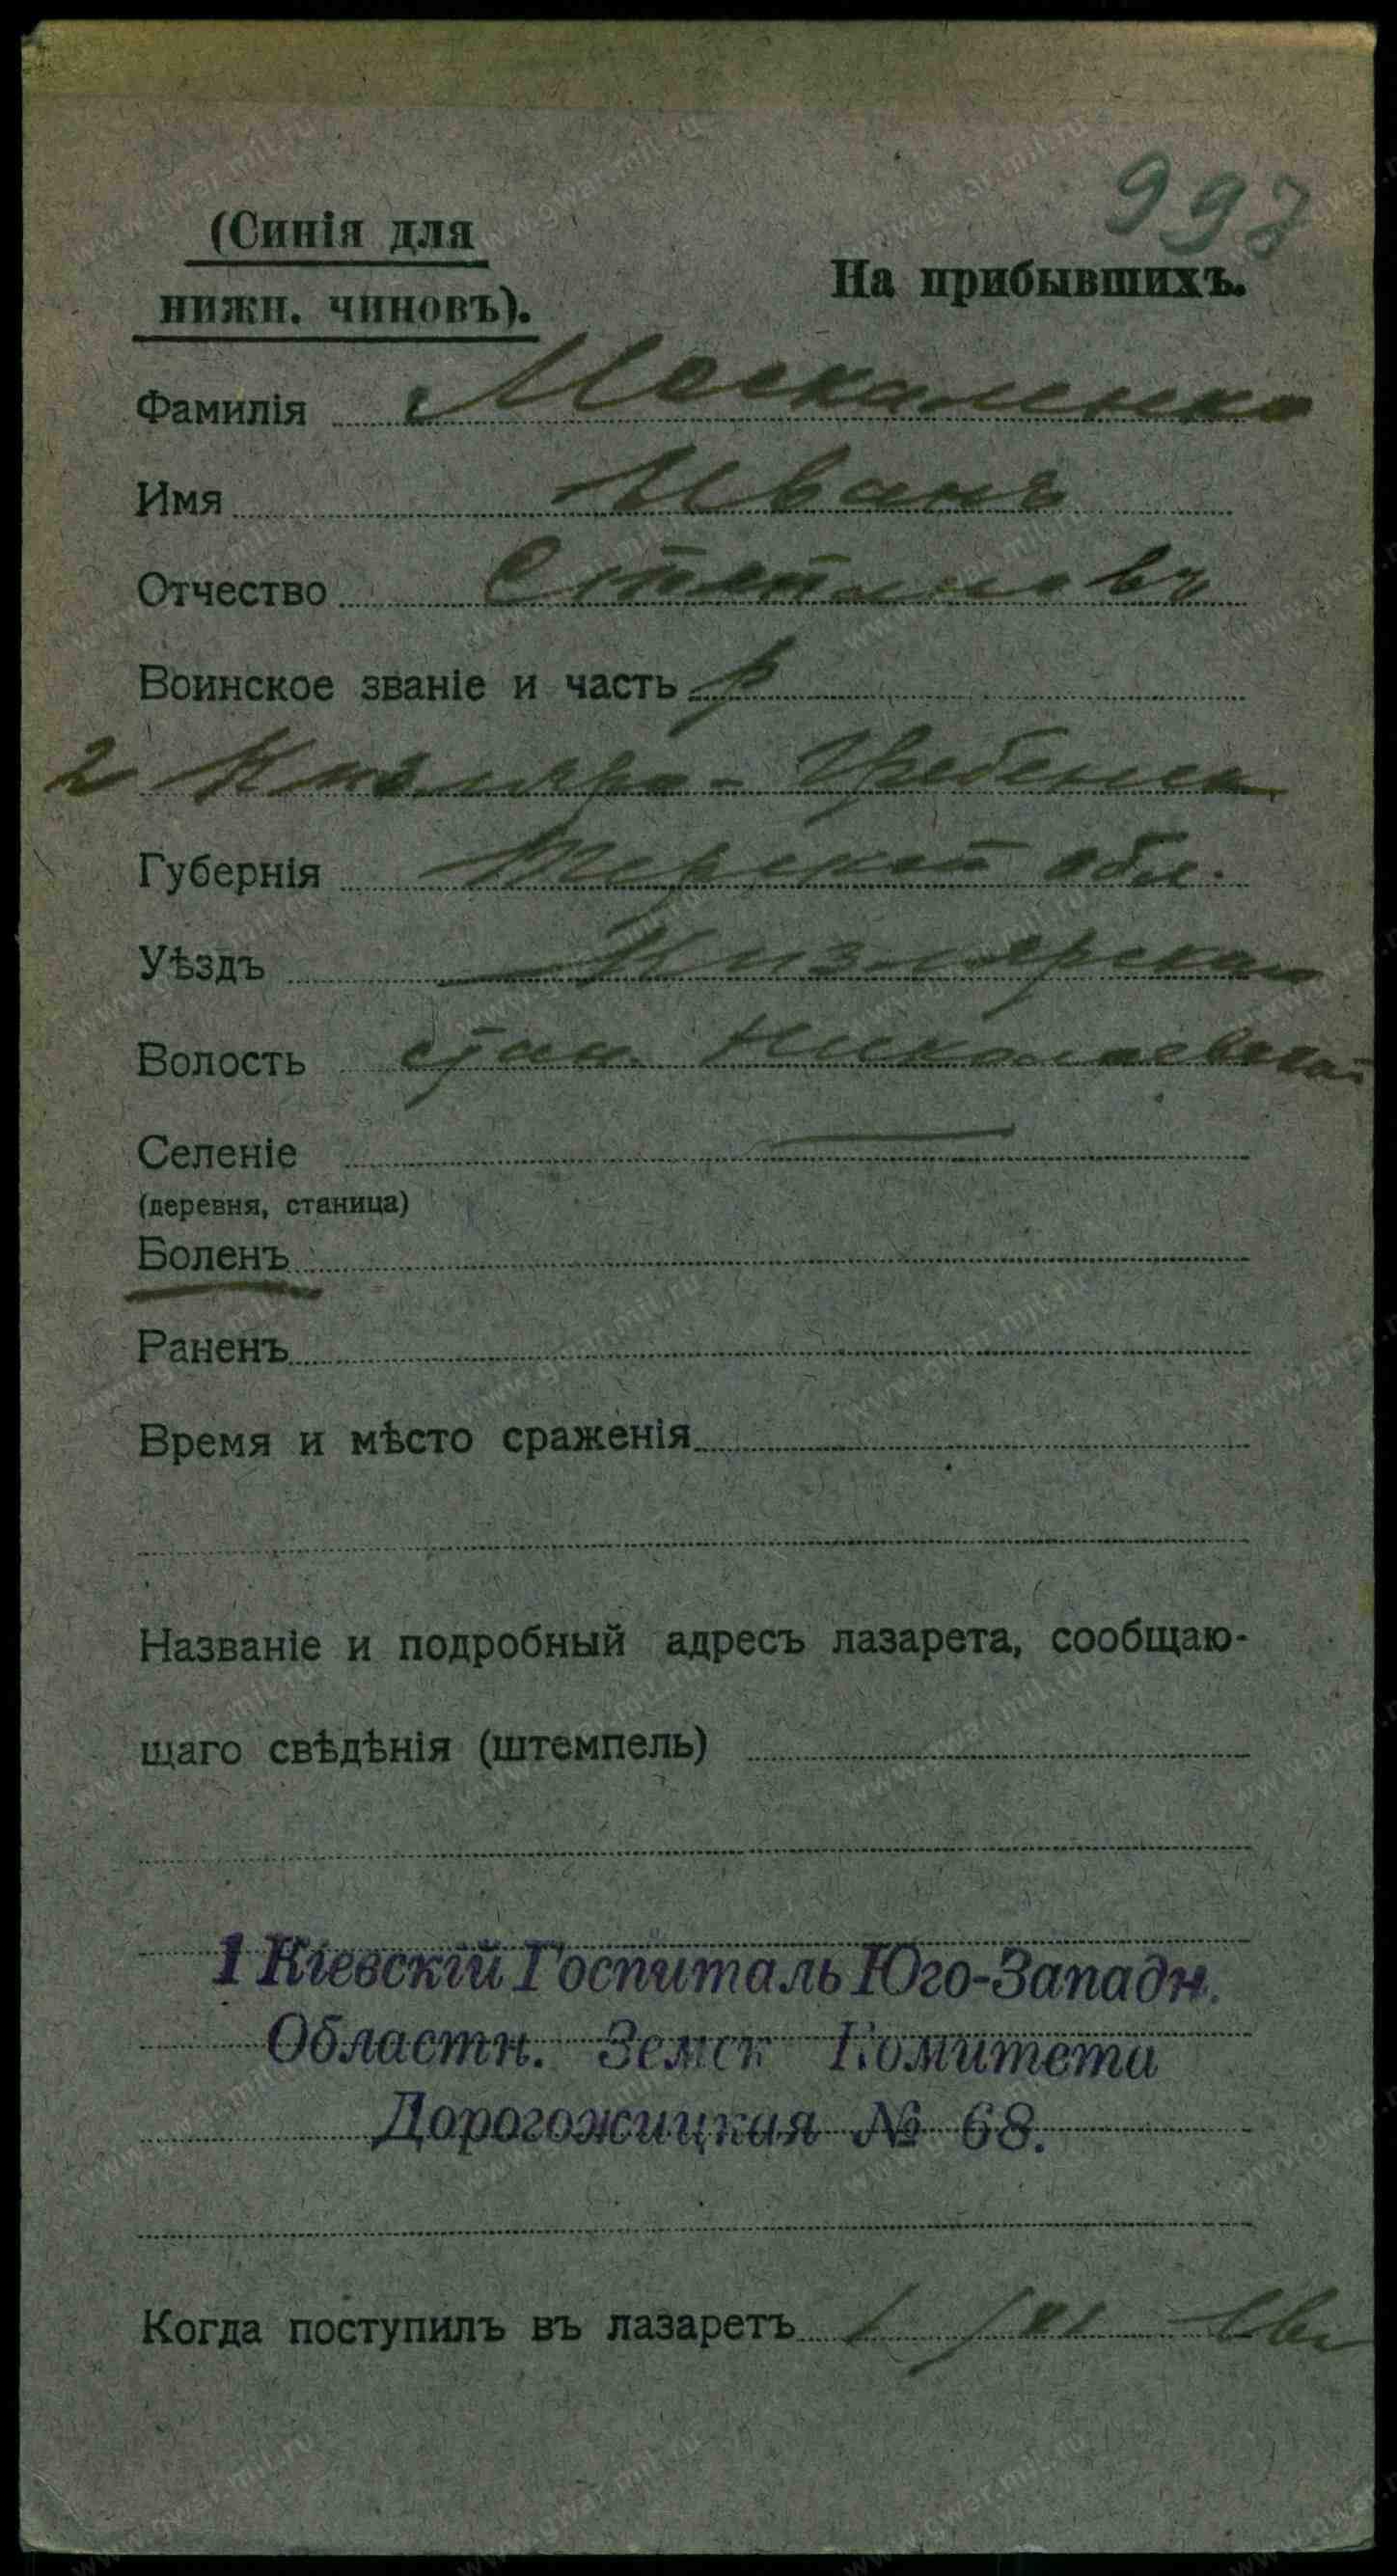 997
(Синія для
нижн. чиновъ).
На прибывшихъ.
Фамилія Москаленко
Имя Иванъ
Отчество Степановъ
Воинское званіе и часть р
2 Кизляро-Гребенск
Губернія Терской обл.
Уѣздъ Кизлярскаго
Волость стан. Николаевской
Селеніе
(деревня, станица)
Боленъ
Раненъ
Время и мѣсто сраженія
Названіе и подробный адресъ лазарета, сообщаю-
щаго свѣдѣнія (штемпель)
1 Кіевскій Госпиталь Юго-Западн.
Областн. Земск Комитета
Дорогожицкая № 68.
Когда поступилъ въ лазаретъ
www.gwar.mil.ru